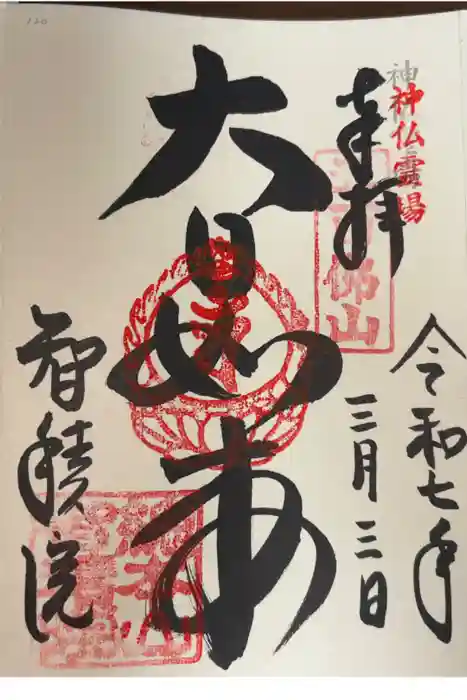 120
神仏霊場
奉拝
令和七年
三月三日
大日如来
智積院